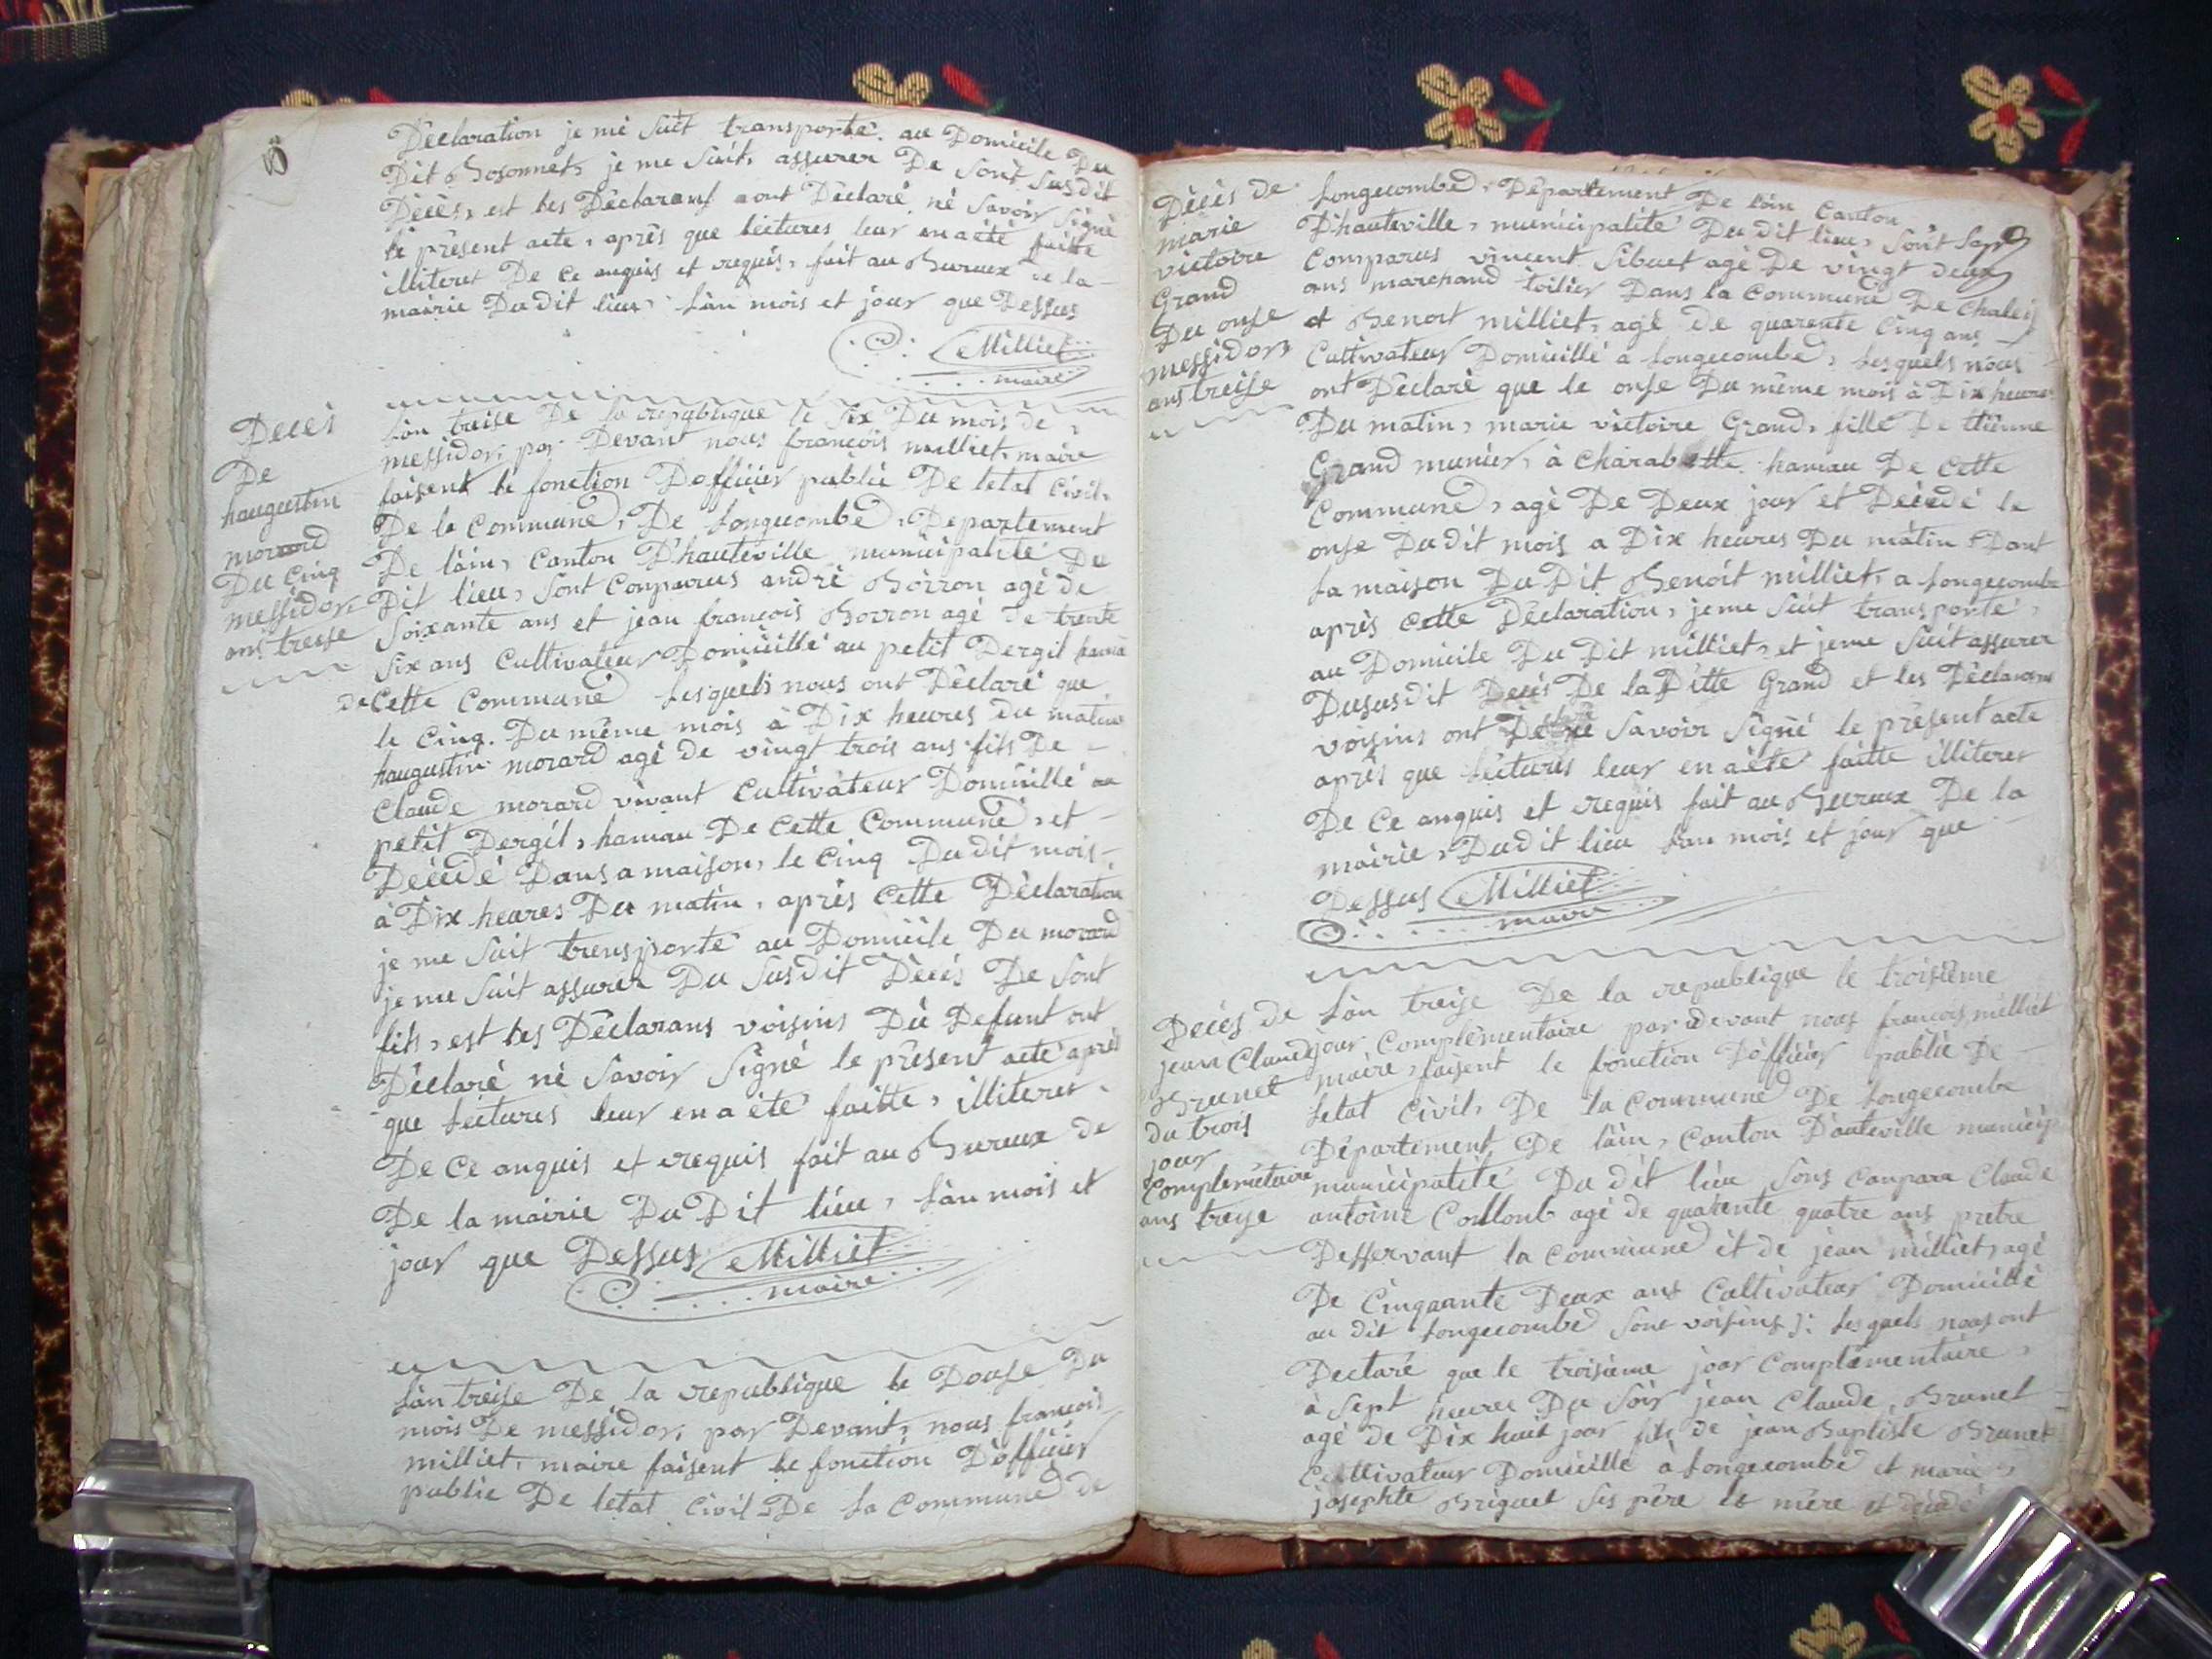 Dèclaration je me suit transporté au Domicile Du
Dit Bosonnet, je me suit, assurer De sont susdit
Dècès, est les Dèclarans ont Dèclaré né savoir signé
le présent acte, après que lectures leur en a été faitte
illiteret De ce anquis et requis, fait au Bureux de la
mairie Dudit lieu, l'an mois et jour que Dessus
Milliet
maire
Decès
De
haugustin
morard
Du cinq
messidor
ans treise
l'an treise De la republique le six Du mois de
messidor, par Devant nous francois milliet, maire
faisent le fonction Dofficier publié De letat civil,
De la commune, De Longecombe, Departement
De l'ain, canton D'hauteville municipalité Du
Dit lieu, sont Conparus andré Borron agé de
soixante ans et jean francois Borron agé de trente
six ans cultivateur Domicillié au petit Dergit hamau
de Cette Commune lesquels nous ont Dèclaré que
le cinq. Du même mois à Dix heures du matin
haugustin morard agé de vingt trois ans fils De
Claude morard vivant Cultivateur Domicillé au
petit Dergit, hamau De Cette Commune, et
Dècèdè Dans a maison, le cinq Dudit mois
à Dix heures Du matin, après cette Dèclaration
je me suit trensporté au Domicile Du morard
je me suit assurer Du susdit Dècès De sont
fils, est les Dèclarans voisins Du Defunt ont
Dèclaré né savoir signé le présent acte après
que lectures leur en a été faitte, illiteret
De ce anquis et requis fait au Bureux de
De la mairie Du Dit lieu, l'an mois et
jour que Dessus Milliet
maire
l'an treise De la republique le Douse Du
mois De messidor, par Devant, nous francois
milliet, maire faisent le fonction D'officier
publié De letat civil De la Commune de
Dècès de
marie
victoire
Grand
Du onse
messidor
ans treise
Longecombe, Département De l'ain Canton
D'hauteville, municipalité Du dit lieu, sont
Comparus vincent Sibuet agé De vingt deux
ans marchand toilier Dans la Commune De Chaley
et Benoit milliet, agé de quarente cinq ans
Cultivateur Domicillé a Longecombe, lesquels nous
ont Dèclaré que le onse Du même mois à Dix heures
Du matin, marie victoire Grand, fille De Etienne
Grand munier, à charabotte hamau De Cette
Commune, agé De Deux jour et Dècèdé le
onse Dudit mois a Dix heures Du matin Dant
la maison Du Dit Benoit milliet, a Longecombe
après cette Dèclaration, je me suit transporté,
au Domicile Du Dit milliet, et je me suit assurer
Dususdit Decès De la Ditte Grand et les Dèclarans
voisins ont savoir signé le présent acte
après que lectures leur en a été faitte illiteret
De ce anquis et requis fait au Bureux De la
mairie, Dudit lieu l'an mois et jour que
Dessus Milliet
maire
Decès de
jean Claude
Brunet
du trois
jour
Complemetaire
ans treise
l'an treise De la republique le troisième
jour Complèmentaire par devant nous francois milliet
maire, faisent le fonction D'officier publié De
letat civil, De la Commune De Longecombe
Département De l'ain, Canton D'auteville municip
municipalité Du dit lieu sons Canpara Claude
antoine Coullonb agé de quatente quatre ans pretre
Desservant la Commune et de jean milliet, agé
De Cinquante Deux ans Cultivateur Domicillé
au dit Longecombe sont voisins ): lesquels nous ont
Dectaré que le troisième jour Complèmentaire,
à sept heures Du soir jean Claude, Brunet
agé de Dix huit jour fils de jean Baptiste Brunet
Cultivateur Domicillé à Longecombe et marie,
josephte Briguet ses père et mère et dècèdé